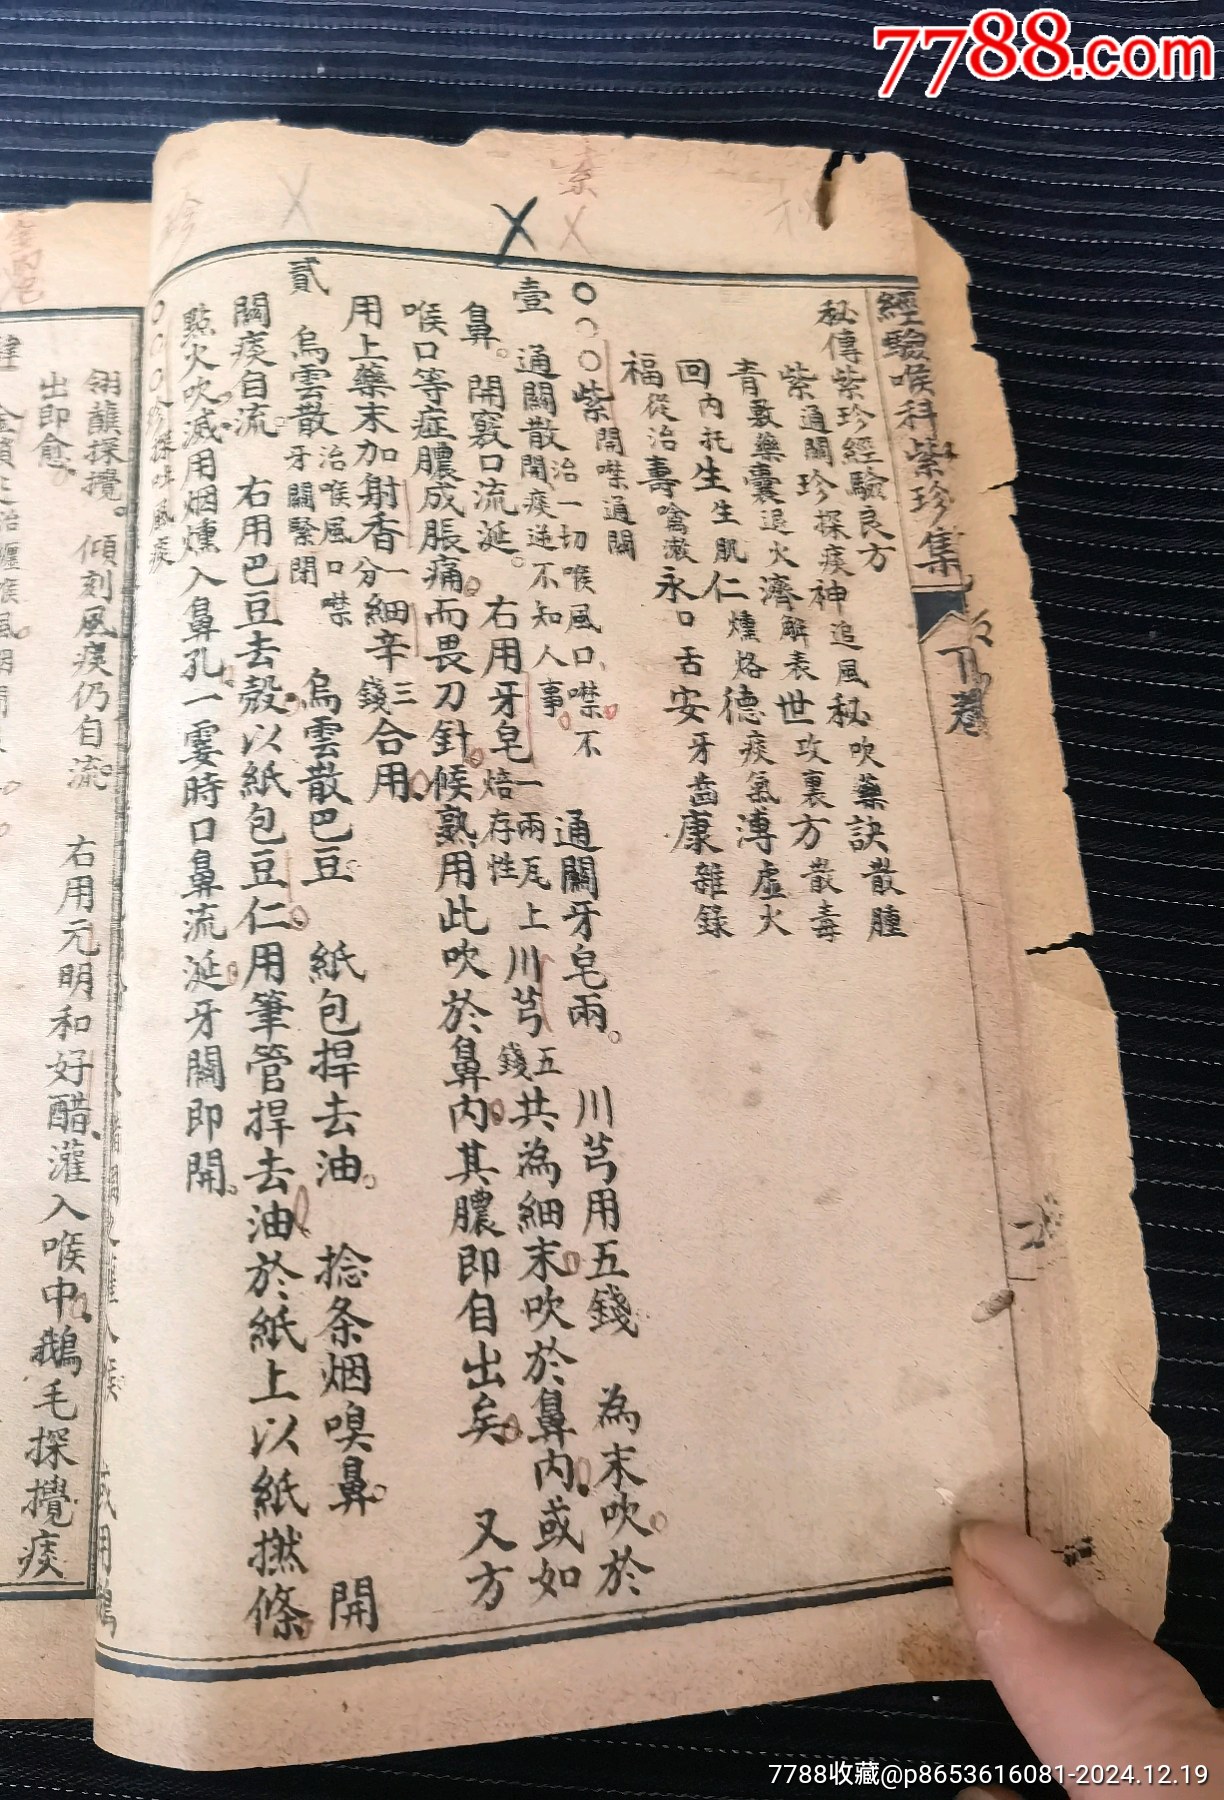 7788.com
經驗喉科紫珍集
下卷
秘傳紫珍經驗良方
紫通關珍探痰神追風秘吹藥訣散腫
青敷藥囊退火濟解表世攻裏方散毒
回內托生生肌仁燻烙德痰氣溥虛火
福從治壽噙漱永口舌安牙齒康雜錄
○○○紫開噤通關
壹 通關散治一切喉風口噤不開痰逆不知人事 通關牙皂兩 川芎用五錢 為末吹於
鼻 開竅口流涎 右用牙皂一兩瓦上焙存性川芎五錢共為細末吹於鼻內或如
喉口等症膿成脹痛而畏刀針候熟用此吹於鼻內其膿即自出矣 又方
用上藥末加射香一分細辛三錢合用
貳 烏雲散治喉風口噤牙關緊閉 烏雲散巴豆 紙包捍去油 捻条烟嗅鼻 開
關痰自流 右用巴豆去殼以紙包豆仁用筆管捍去油於紙上以紙撚條
點火吹滅用烟燻入鼻孔一霎時口鼻流涎牙關即開
○○○珍探吐風痰
翎蘸探攪 傾刻風痰仍自流 右用元明和好醋灌入喉中鵝毛探攪痰
出即愈
7788收藏@p8653616081-2024.12.19